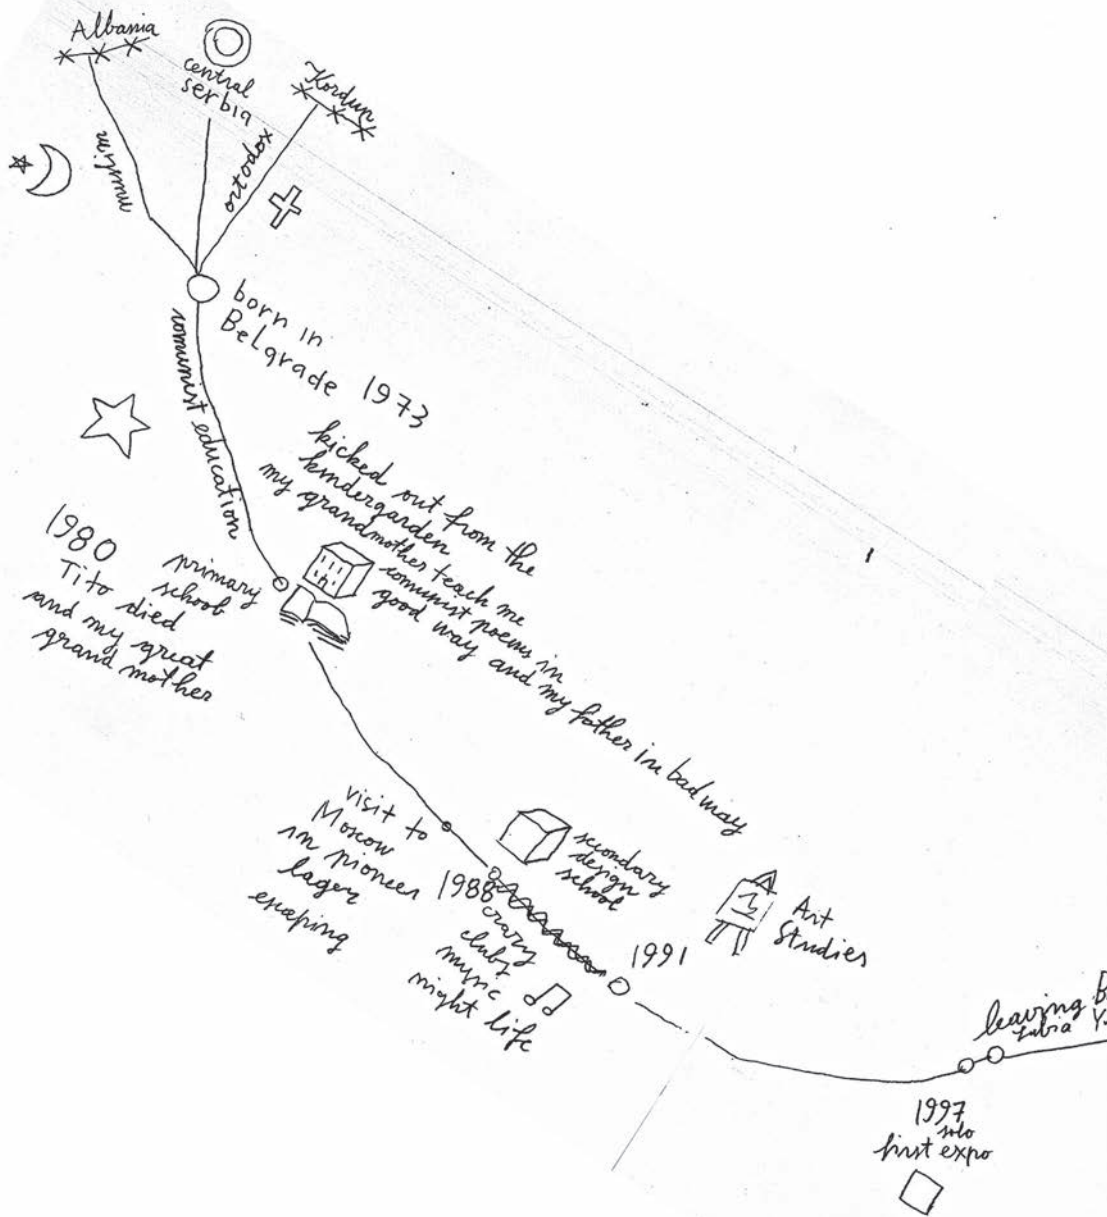 Albania
central
serbia
Kordun
muslim
ortodox
born in
Belgrade 1973
comunist education
kicked out from the
kindergarden
my grandmother teach me
comunist poems in
good way and my father in bad way
1980
Tito died
and my great
grand mother
primary
school
visit to
Moscow
in pioneer
lager
escaping
1988
crazy
clubs
music
night life
secondary
design
school
1991
Art
Studies
leaving
1997
solo
first expo